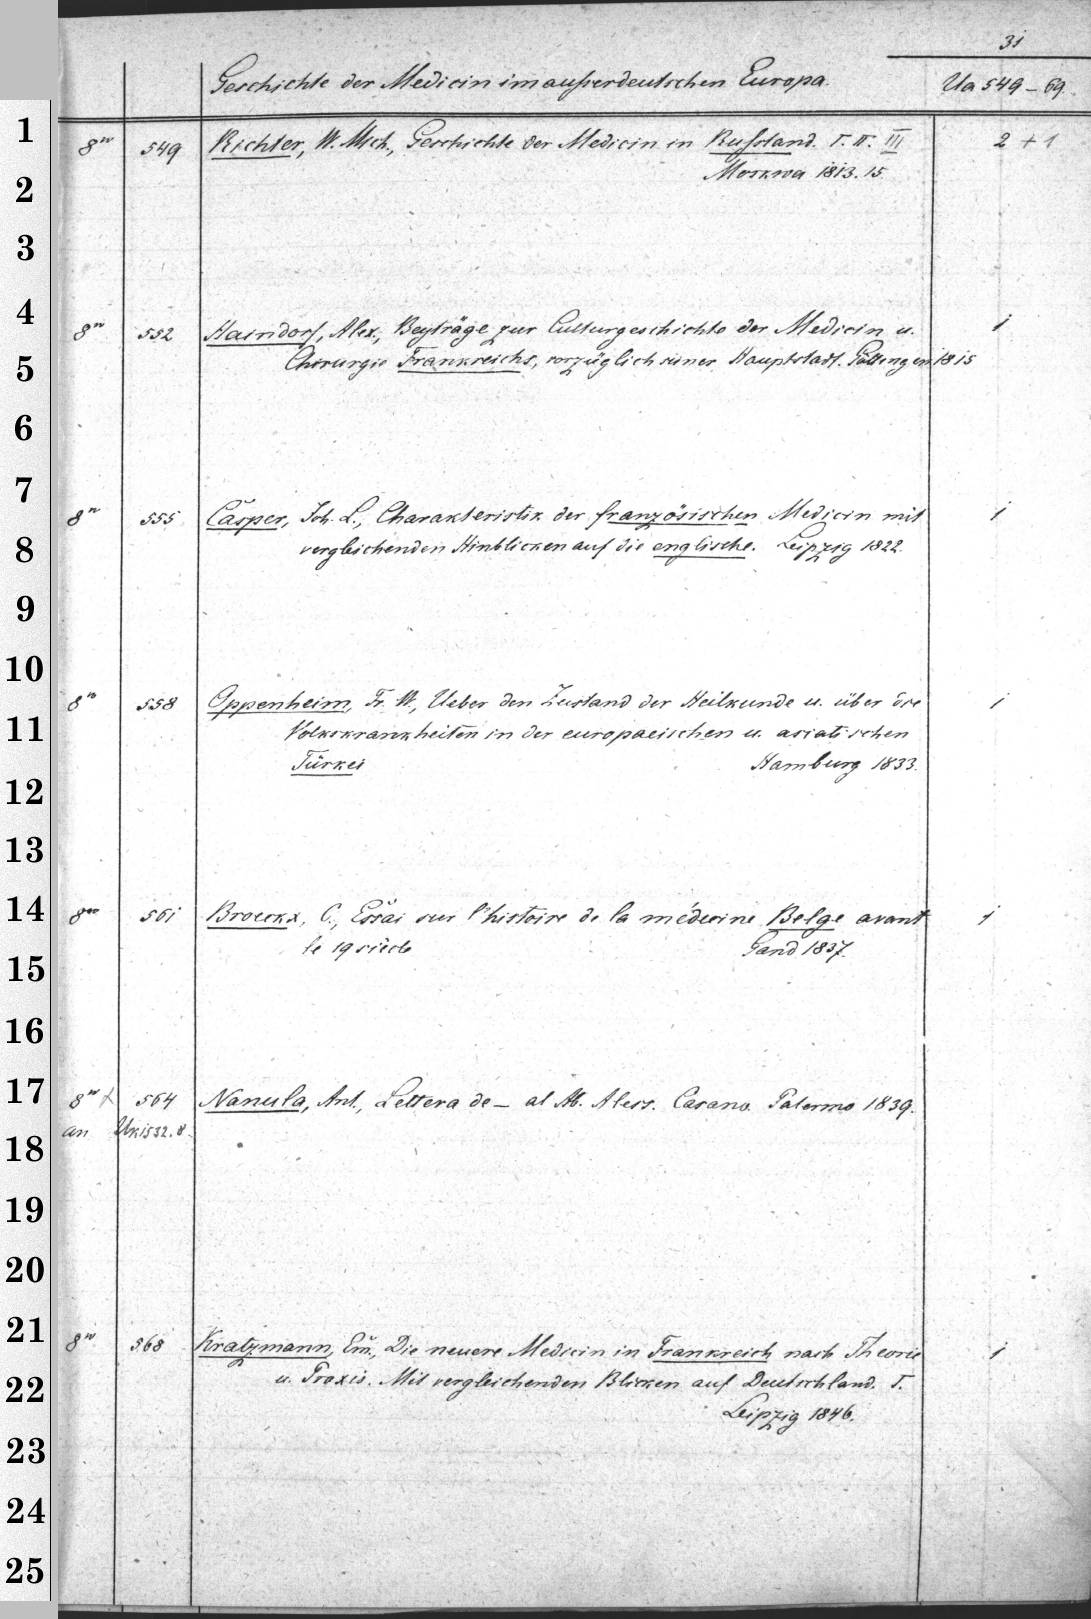 31
Geschichte der Medicin im außerdeutschen Europa. Ua 549–69.
1
8vo 549 Richter, W. Mich., Geschichte der Medicin in Russland. T. II. III 2 + 1
2
Moskwa 1813. 15.
3
4
8vo 552 Haindorf, Alex., Beyträge zur Culturgeschichte der Medicin u. 1
5
Chirurgie Frankreichs, vorzüglich seiner Hauptstadt. Göttingen 1815
6
7
8vo 555 Casper, Joh. L., Charakteristik der französischen Medicin mit 1
8
vergleichenden Hinblicken auf die englische. Leipzig 1822.
9
10
8vo 558 Oppenheim, Fr. W., Ueber den Zustand der Heilkunde u. über die 1
11
Volkskrankheiten in der europaeischen u. asiatischen
Türkei Hamburg 1833.
12
13
14
8vo 561 Broeckx, C., Essai sur l'histoire de la médecine Belge avant 1
le 19 siècle Gand 1837.
15
16
17
8vo x 564 Nanula, Ant., Lettera de – al Ab. Aless. Casano. Palermo 1839.
an Uk 1532. 8.
18
19
20
21
8vo 568 Kratzmann, Em., Die neuere Medicin in Frankreich nach Theorie 1
22
u. Praxis. Mit vergleichenden Blicken auf Deutschland. T.
Leipzig 1846.
23
24
25